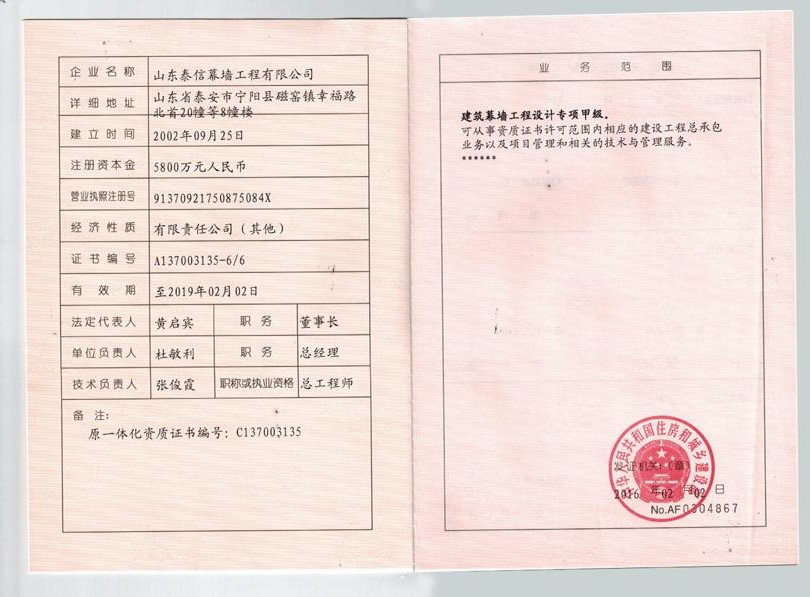 企业名称 山东泰信幕墙工程有限公司
详细地址 山东省泰安市宁阳县磁窑镇幸福路
北首20幢等8幢楼
建立时间 2002年09月25日
注册资本金 5800万元人民币
营业执照注册号 91370921750875084X
经济性质 有限责任公司（其他）
证书编号 A137003135-6/6
有效期 至2019年02月02日
法定代表人 黄启宾 职务 董事长
单位负责人 杜敏利 职务 总经理
技术负责人 张俊霞 职称或执业资格 总工程师
备注:
原一体化资质证书编号：C137003135
业务范围
建筑幕墙工程设计专项甲级。
可从事资质证书许可范围内相应的建设工程总承包
业务以及项目管理和相关的技术与管理服务。
******
中华人民共和国住房和城乡建设部
发证机关:（章）
2016年02月02日
No.AF0304867